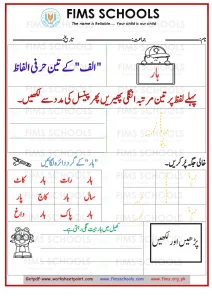 FIMS SCHOOLS
The name is Reliable.... Your child is our child
نام: جماعت: تاریخ:
"الف" کے تین حرفی الفاظ
ہار
پہلے لفظ پر تین مرتبہ انگلی پھیریں پھر پینسل کی مدد سے لکھیں۔
"ہار" کے گرد دائرہ لگائیں
خالی جگہ پُر کریں۔
ہار رات ہار کاٹ
سال ہار کاج ہار
ہار پاک ہار داغ
پڑھیں اور لکھیں
Getpdf www.worksheetpoint.com www.fimsschools.com www.fims.org.pk